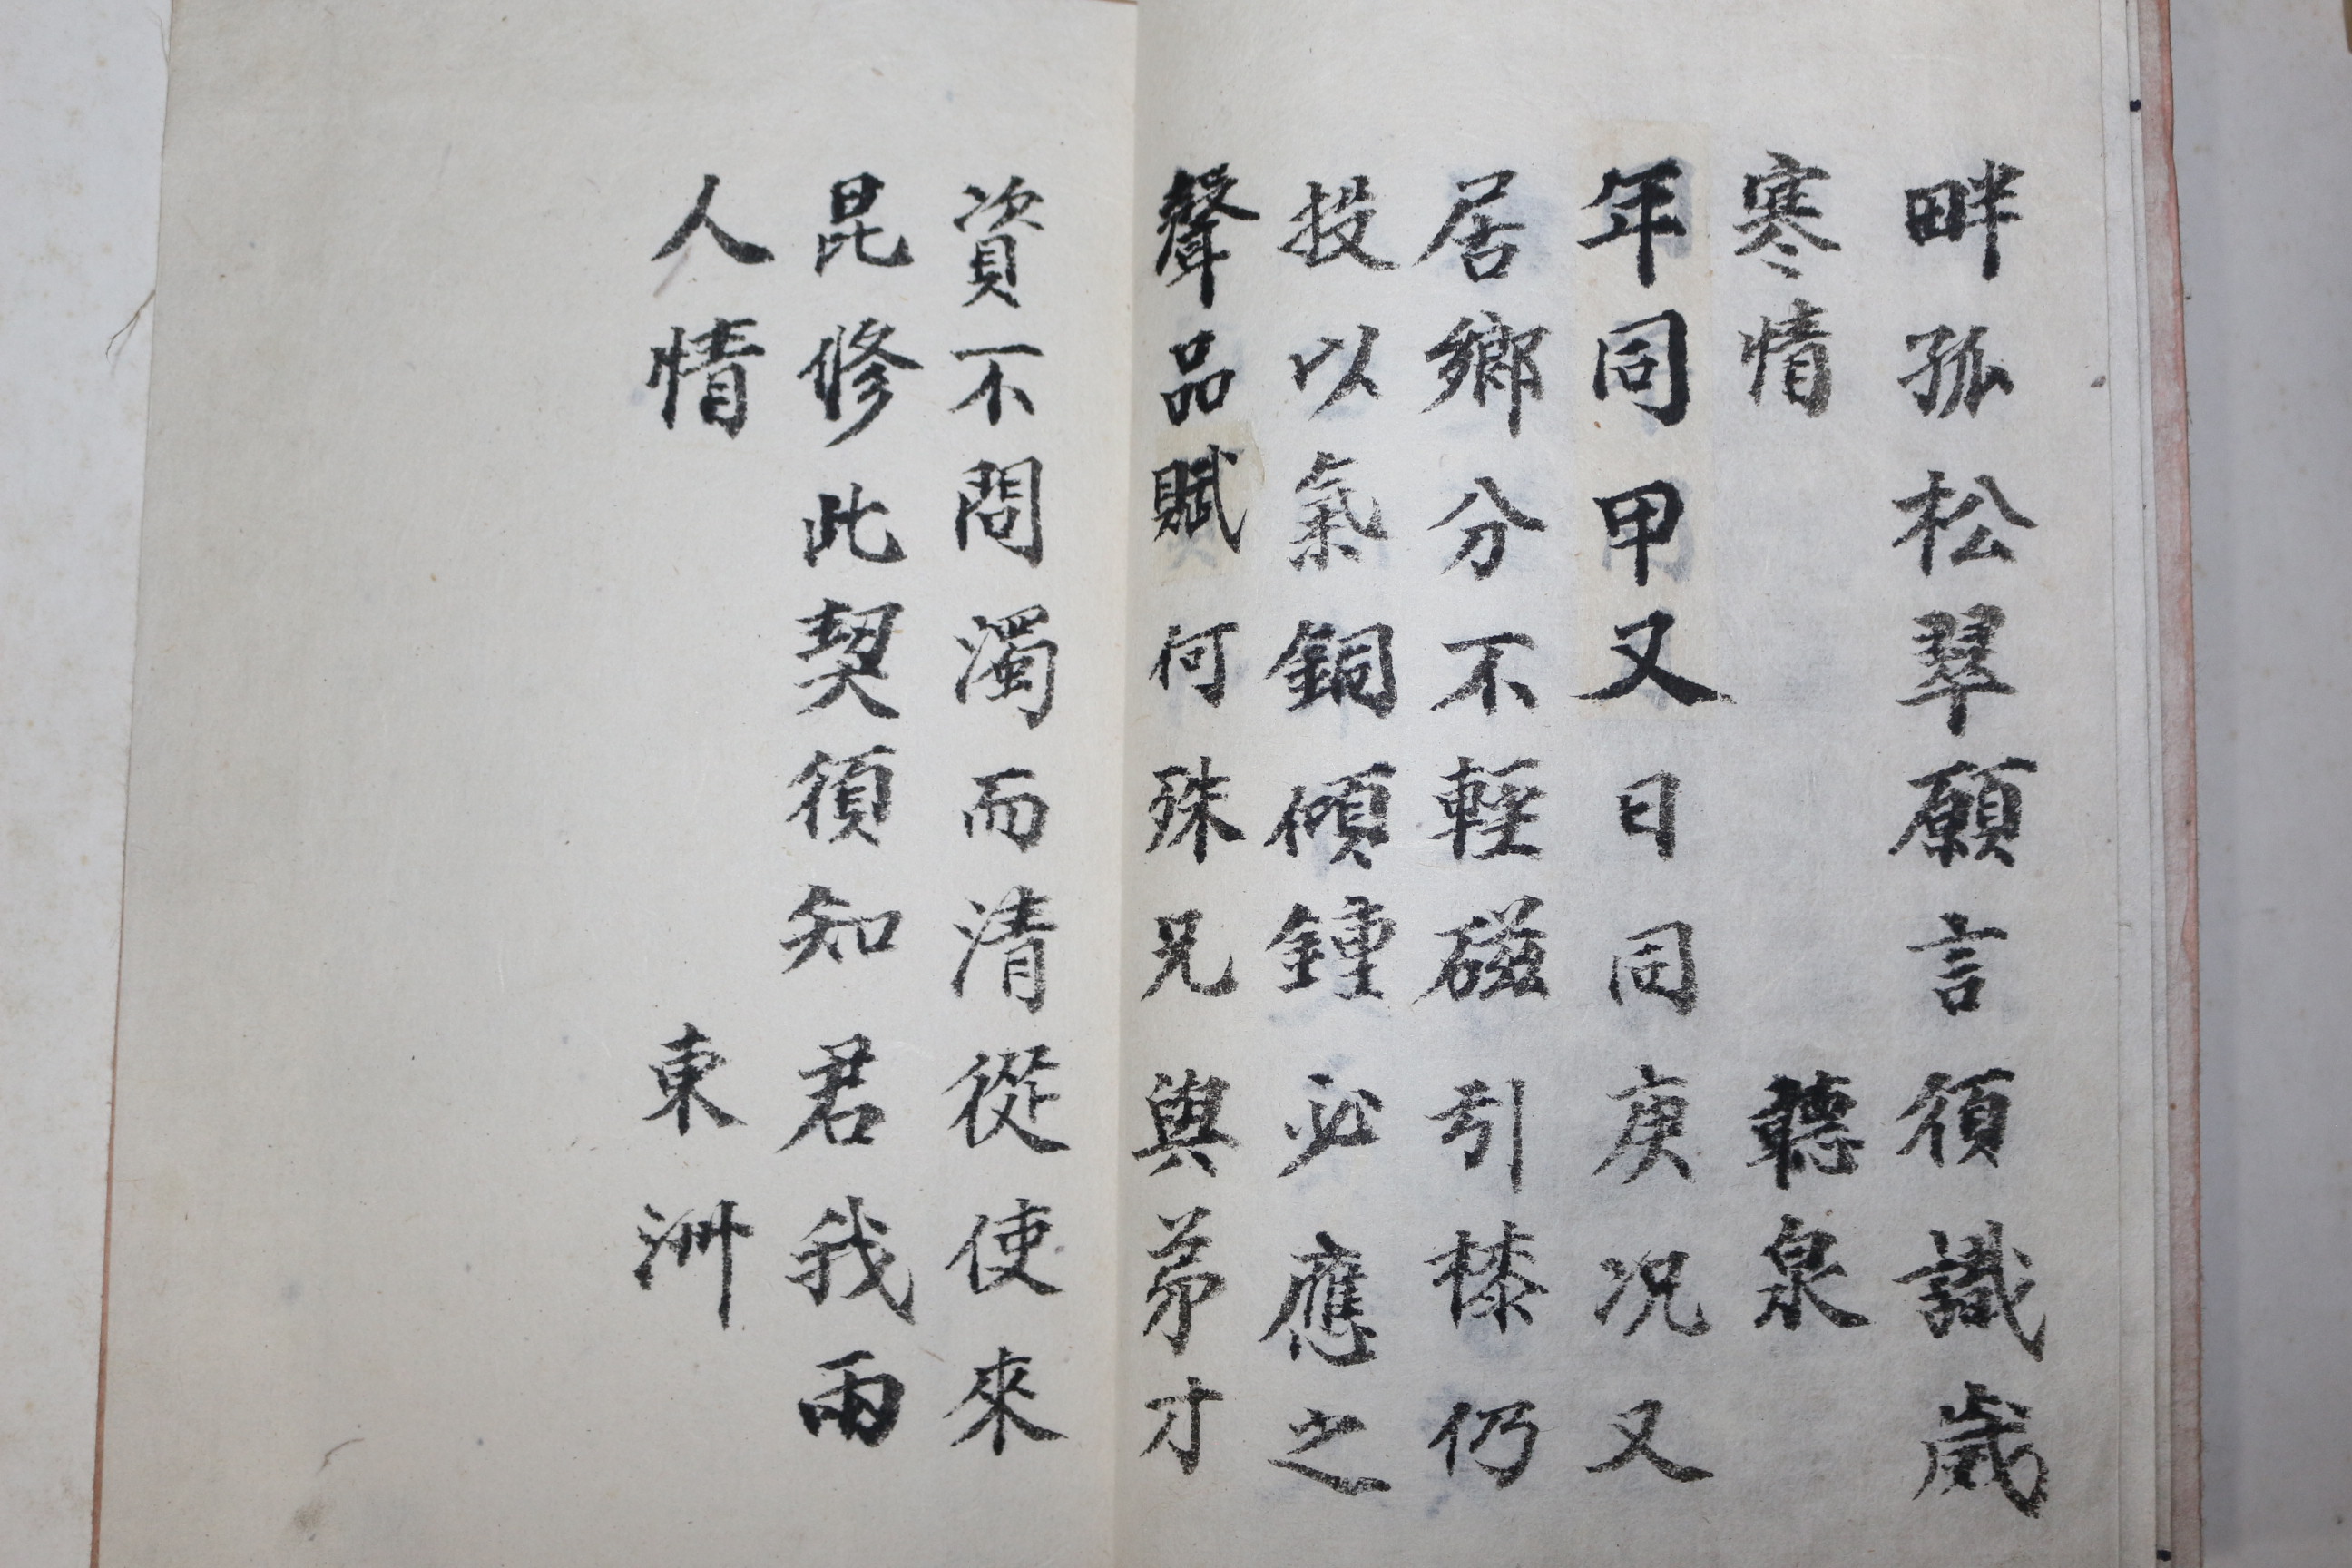 畔孤松翠願言須識歲
寒情　聽泉
年同甲又日同庚況又
居鄉分不輕磁引𣘻仍
投以氣銅傾鍾必應之
聲品賦何殊兄與弟才
資不問濁而清從使來
昆修此契須知君我兩
人情　東洲